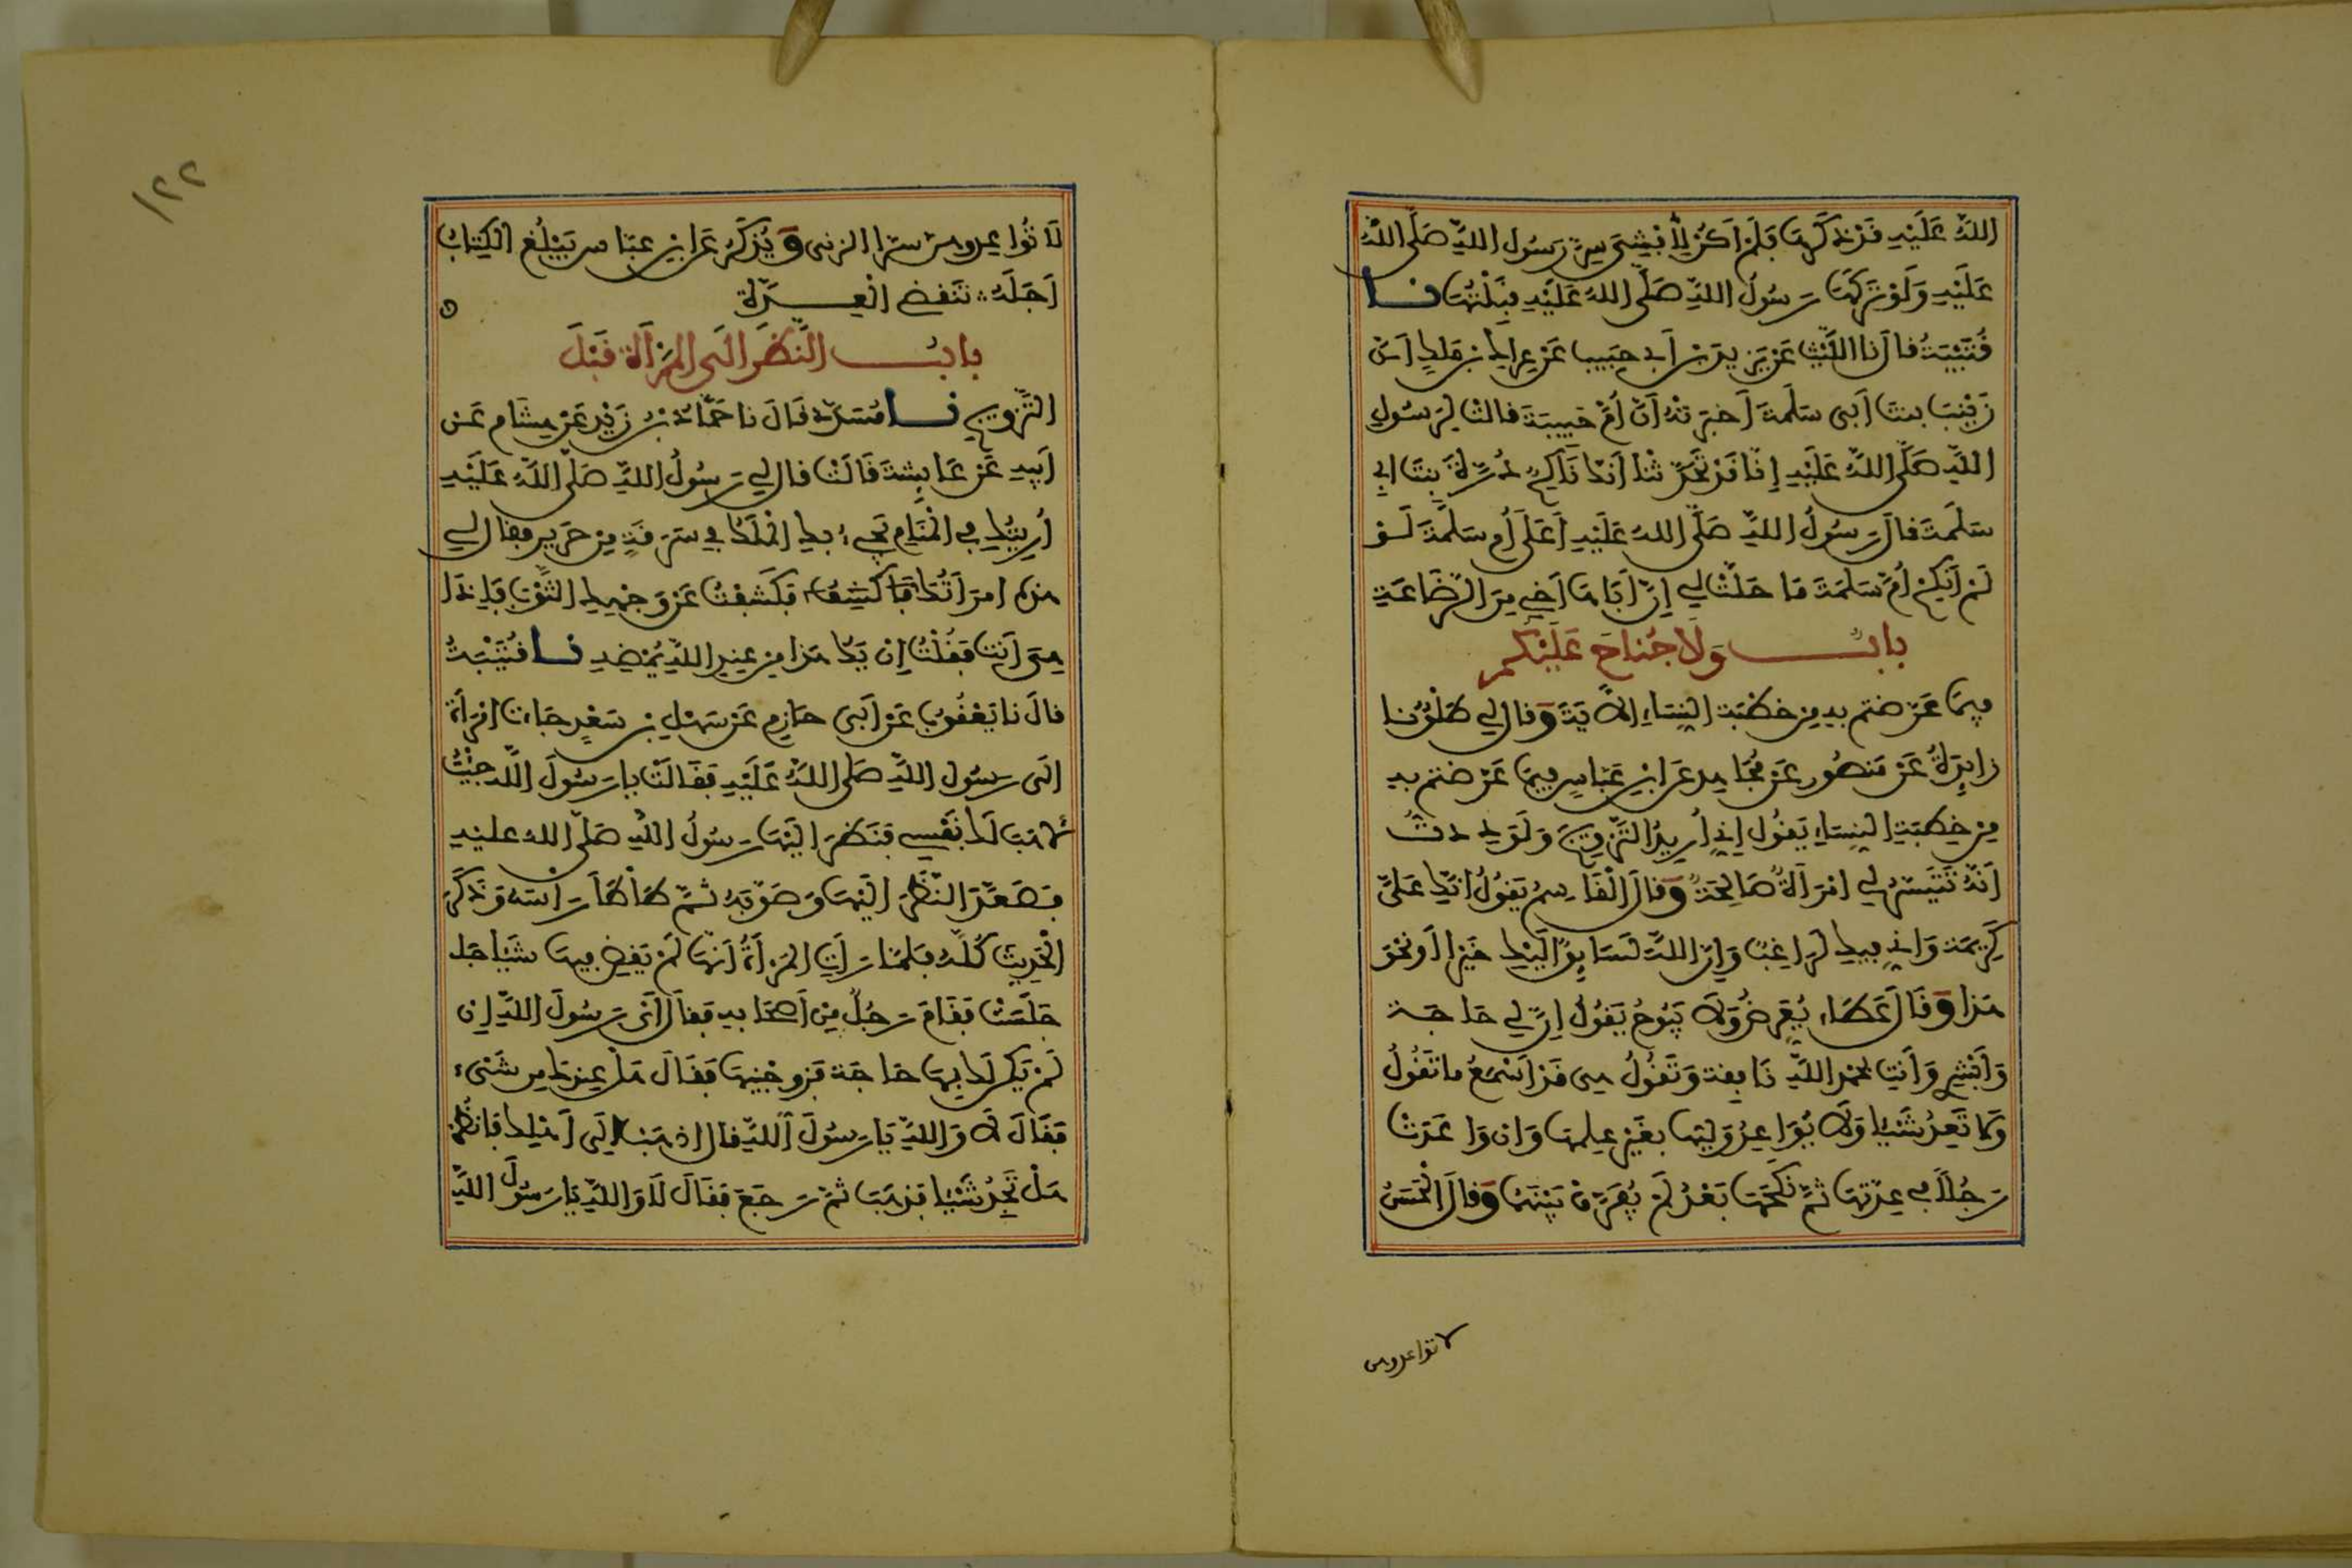 اللهُ عَلَيْهِ قَدْ ذَكَرَهَا فَلَمْ أَكُنْ لِأُفْشِيَ سِرَّ رَسُولِ اللهِ صَلَّى اللهُ
عَلَيْهِ وَلَوْ تَرَكَهَا رَسُولُ اللهِ صَلَّى اللهُ عَلَيْهِ قَبِلْتُهَا نا
قُتَيْبَةُ قال نا اللَّيْثُ عَنْ يَزِيدَ بْنِ أَبِي حَبِيبٍ عَنْ عِرَاكِ بْنِ مَالِكٍ أَنَّ
زَيْنَبَ بنتَ أَبِى سَلَمَةَ أَخبَرَتْهُ أَنَّ أُمَّ حَبِيبَةَ قالتْ لِرَسُولِ
اللهِ صَلَّى اللهُ عَلَيْهِ إِنَّا قَدْ تَحَدَّثْنَا أَنَّكَ نَاكِحٌ دُرَّةَ بِنْتَ أَبِي
سَلَمَةَ فقال رَسُولُ اللهِ صَلَّى اللهُ عَلَيْهِ أَعَلَى أُمِّ سَلَمَةَ لَوْ
لَمْ أَنْكِحْ أُمَّ سَلَمَةَ مَا حَلَّتْ لِي إِنَّ أَبَاهَا أَخِي مِنَ الرَّضَاعَةِ
بابُ وَلَا جُنَاحَ عَلَيْكُم
فِيمَا عَرَّضتم بِهِ مِنْ خِطْبَةِ النِّسَاءِ الآيَةَ وَقال لي طَلْقٌ نا
زَائِدَةُ عَنْ مَنصُورٍ عَنْ مُجَاهِدٍ عَنِ ابْنِ عَبَّاسٍ فِيمَا عَرَّضتم بِهِ
مِنْ خِطْبَةِ النِّسَاءِ يَقُول إِنِّي أُرِيدُ التَّزْوِيجَ وَلَوَدِدتُ
أَنَّهُ تَتَيَسَّرُ لِي امْرَأَةٌ صَالِحَةٌ وَقَالَ الْقَاسِمُ يَقُولُ إِنَّكِ عَلَيَّ
كَرِيمَة وَإِنِّي فِيكِ لَرَاغِبٌ وَإِنَّ اللهَ لَسَائِقٌ إِلَيْكِ خَيْرًا أَوْ نَحْوَ
هَذَا وَقَالَ عَطَاء يُعَرِّضُ وَلَا يَبُوحُ يَقُولُ إِنَّ لِي حَاجَة
وَأَبْشِرِي وَأَنْتِ بحَمْدِ اللهِ نَافِقَة وَتَقُولُ هِيَ قَدْ أَسْمَعُ مَا تَقُولُ
وَلا تَعِدُ شَيْئًا وَلَا يُوَاعِدُ وَلِيَّهَا بِغَيْرِ عِلْمِهَا وَإِن وَاعَدَتْ
رَجُلًا فِي عِدَّتِهَا ثُمَّ نَكَحَهَا بَعْدُ لَمْ يُفَرَّقْ بَيْنَهُمَا وَقَالَ الْحَسَنُ
لا تواعدوهن
١٢٢
لَا تُوَاعِدوهن سِرًّا الزنى وَيُذْكَرُ عَنِ ابْنِ عَبَّاسٍ يَبْلُغَ الْكِتَابُ
أَجَلَهُ تَنْقَضِي الْعِدَّة
بابُ النَّظَرِ إِلَى الْمَرْأَةِ قَبْلَ
التَّزْوِيجِ نا مُسَدَّد قَالَ نا حَمَّادُ بْنُ زَيْدٍ عَنْ هِشَامٍ عَنْ
أَبِيهِ عَنْ عَائِشَةَ قَالَتْ قال لِي رَسُولُ اللهِ صَلَّى اللهُ عَلَيْهِ
أُرِيتُكِ فِي الْمَنَامِ يَجِيءُ بِكِ الْمَلَكُ فِي سَرَقَةٍ مِنْ حَرِيرٍ فقال لِي
هَذِهِ امْرَأَتُكَ فَاكْشِفْ فَكَشَفْتُ عَنْ وَجْهِكِ الثَّوْبَ فَإِذَا
هِيَ أَنْتِ فَقُلْتُ إِنْ يَكُ هَذَا مِنْ عِنْدِ اللهِ يُمْضِهِ نا قُتَيْبَةُ
قال نا يَعْقُوبُ عَنْ أَبِي حَازِمٍ عَنْ سَهْلِ بْنِ سَعْدٍ جَاءَتِ امْرَأَة
إِلَى رَسُولِ اللهِ صَلى اللهُ عَلَيْهِ فَقَالَتْ يا رَسُولَ اللهِ جِئْتُ
لأهَبَ لَكَ نَفْسِي فَنَظَرَ إِلَيْهَا رَسُولُ اللهِ صَلَّى الله عليه
فَصَعَّدَ النَّظَرَ إِلَيْهَا وَصَوَّبَهُ ثُمَّ طَأْطَأَ رَأْسَهُ وَذَكَرَ
الْحَدِيثَ كُلَّهُ فَلَمَّا رَأَتِ الْمَرْأَةُ أَنَّهُ لَمْ يَقْضِ فِيهَا شَيْئًا
جَلَسَتْ فَقَامَ رَجُلٌ مِنْ أَصْحَابِهِ فَقَالَ أَيْ رَسُولَ اللهِ إِن
لَمْ يَكُن لَكَ بِهَا حَاجَة فَزَوِّجْنِيهَا فَقَالَ هَلْ عِنْدَكَ مِن شَيْءٍ
فَقَالَ لَا وَاللهِ يَا رَسُولَ اللهِ قَالَ اذهَبْ إِلَى أَهْلِكَ فَانْظُرْ
هَلْ تَجِدُ شَيْئًا فَذَهَبَ ثُمَّ رَجَعَ فَقَالَ لَا وَاللهِ يَا رَسُولَ اللهِ